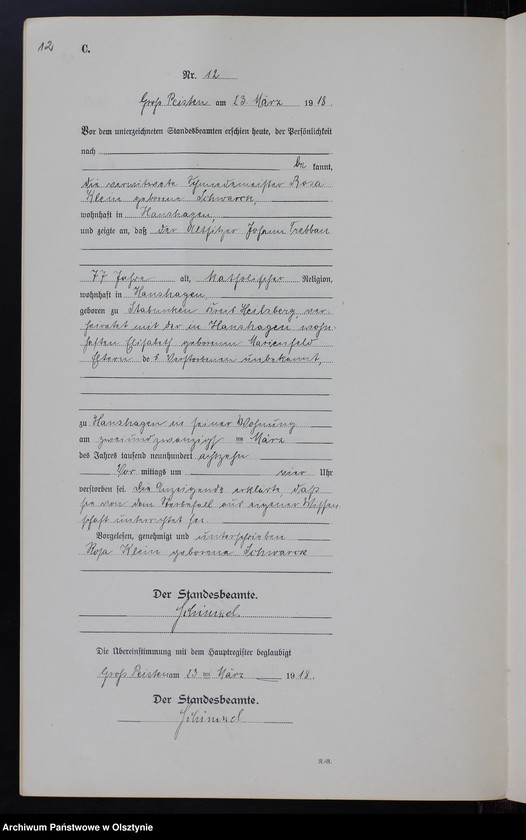 12
C.
Nr. 12
Groß Peisten am 23 März 1918.
Vor dem unterzeichneten Standesbeamten erschien heute, der Persönlichkeit
nach
be kannt,
die verwitwete Schmiedemeister Rosa
Klein geborene Schwarck,
wohnhaft in Hanshagen,
und zeigte an, daß der Altsitzer Johann Trebbau
77 Jahre alt, katholischer Religion,
wohnhaft in Hanshagen,
geboren zu Stabunken Kreis Heilsberg, ver-
heiratet mit der in Hanshagen wohn-
haften Elisabeth geborenen Marienfeld
Eltern des Verstorbenen unbekannt,
zu Hanshagen in seiner Wohnung
am zweiundzwanzigsten März
des Jahres tausend neunhundert achtzehn
Vor mittags um vier Uhr
verstorben sei. Die Anzeigende erklärte, daß
sie von dem Sterbefall aus eigener Wissen-
schaft unterrichtet sei.
Vorgelesen, genehmigt und unterschrieben
Rosa Klein geborene Schwarck
Der Standesbeamte.
Schimmel
Die Übereinstimmung mit dem Hauptregister beglaubigt
Groß Peisten am 23 ten März 1918.
Der Standesbeamte.
Schimmel
Archiwum Państwowe w Olsztynie